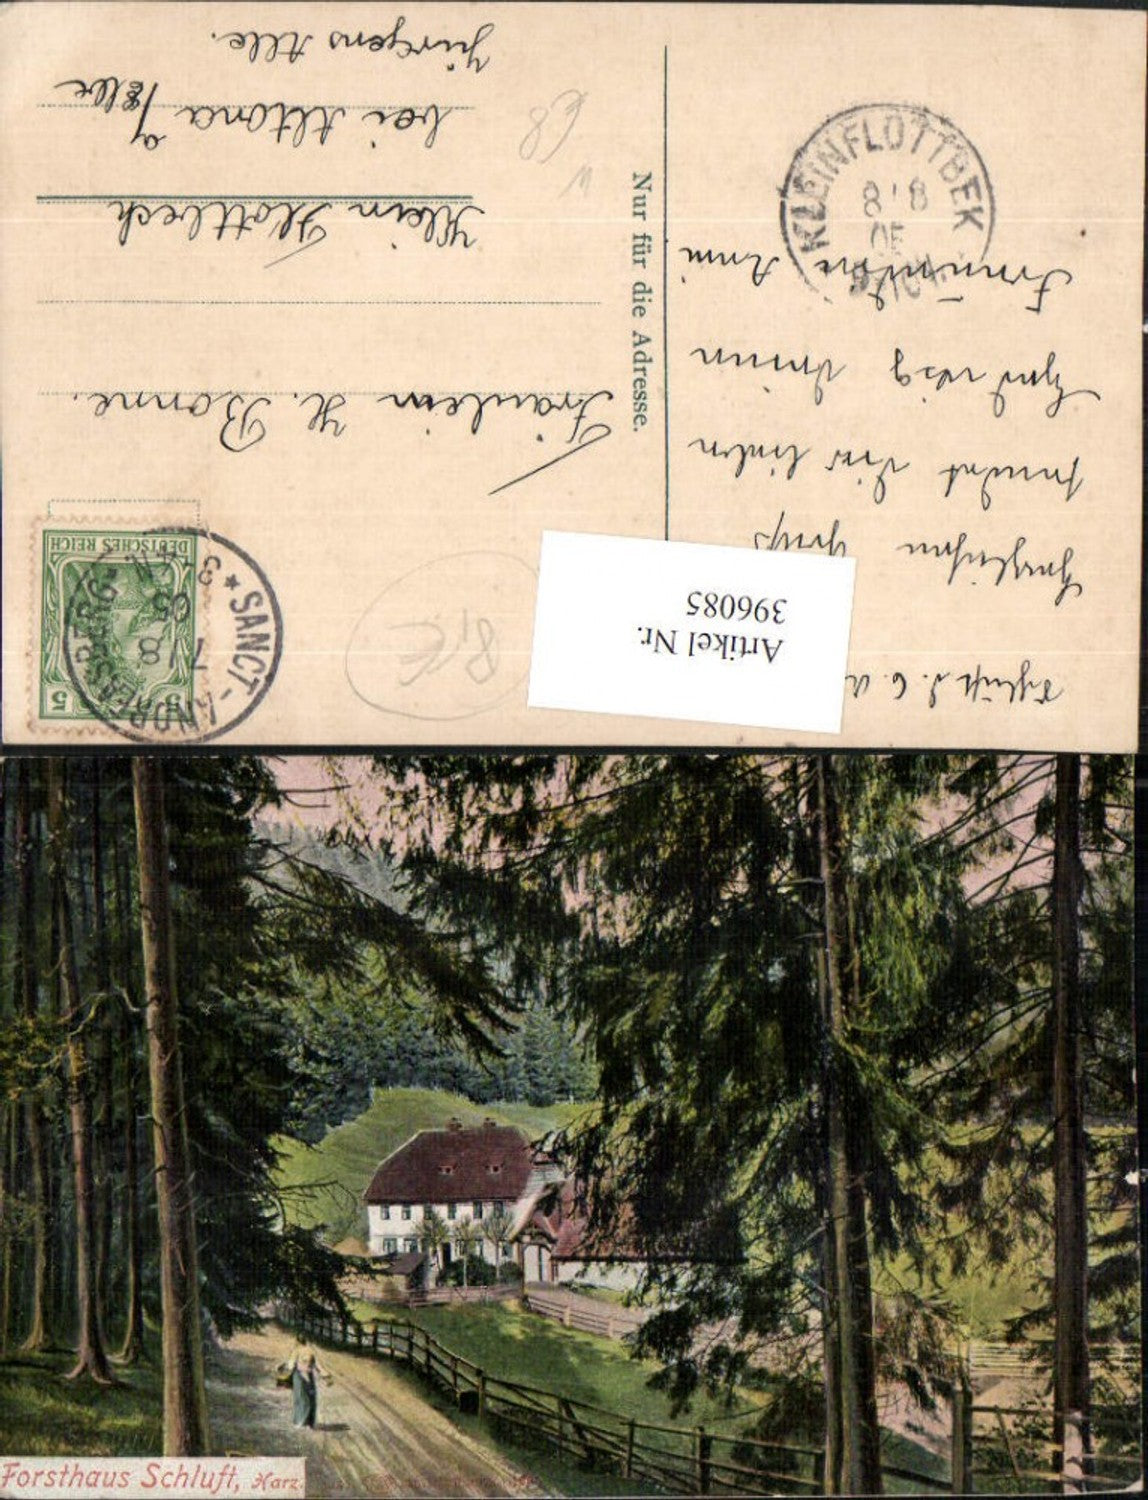 Schluft d. 6. A
Herzlichen Gruß
sendet Dir lieber
Hedwig Deiner
Freundin Anni
Artikel Nr.
396085
Nur für die Adresse.
DEUTSCHES REICH
5 5
* SANCT-ANDREASBERG *
7/8
05
3
KLEINFLOTTBEK
8.8
05
Fräulein H. Bonne.
Klein Flottbeck
bei Altona a/Elbe
Jürgens Alle.
Forsthaus Schluft, Harz.